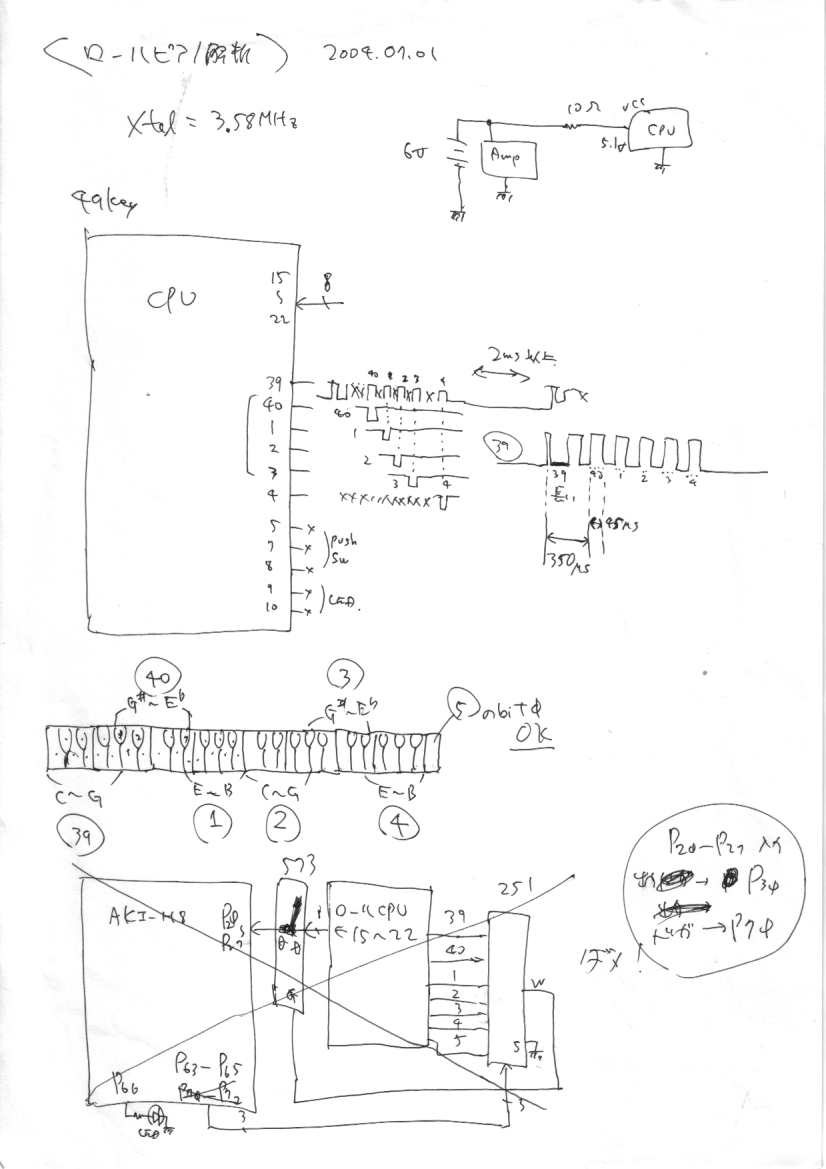 ロールピアノ解析 2009.07.01
Xtal = 3.58MHz
10Ω VCC
CPU
5.1V
6V
Amp
49key
CPU
15
22
8
39
40
1
2
3
4
5
7
8
9
10
push
SW
LED
40 1 2 3 4
2ms以上
40
1
2
3 4
39
39 40 1 2 3 4
45μs
350μs
40
G#~Eb
3
G#~Eb
5のbitφ
OK
C~G
E~B
C~G
E~B
39
1
2
4
573
251
AKI-H8
P20
P27
ロールCPU
15~22
39
40
1
2
3
4
5
W
S
G
P66
P63-P65
LED
3
3
P20-P27 入力
→ P3φ
→ P7φ
ボツ!